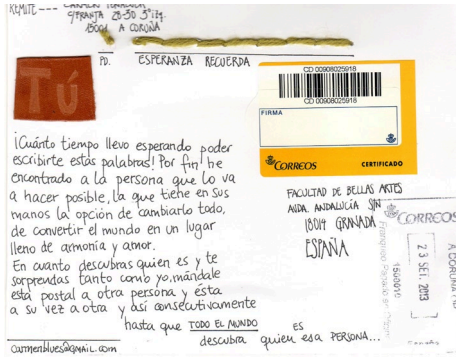 REMITE ---
C/FRANJA 28-30 3º izq.
15001 A CORUÑA
PD. ESPERANZA RECUERDA
TÚ
CD 00908025918
CD 00908025918
FIRMA
CORREOS CERTIFICADO
¡Cuánto tiempo llevo esperando poder
escribirte estas palabras! Por fin he
encontrado a la persona que lo va
a hacer posible, la que tiene en sus
manos la opción de cambiarlo todo,
de convertir el mundo en un lugar
lleno de armonía y amor.
En cuanto descubras quien es y te
sorprendas tanto como yo, mándale
esta postal a otra persona y ésta
a su vez a otra y así consecutivamente
hasta que TODO EL MUNDO
descubra quien es esa PERSONA...
carmenblues@gmail.com
FACULTAD DE BELLAS ARTES
AVDA. ANDALUCÍA S/N
18014 GRANADA
ESPAÑA
CORREOS
23 SEI. 2013
A CORUÑA
Franqueo Pagado
1500016